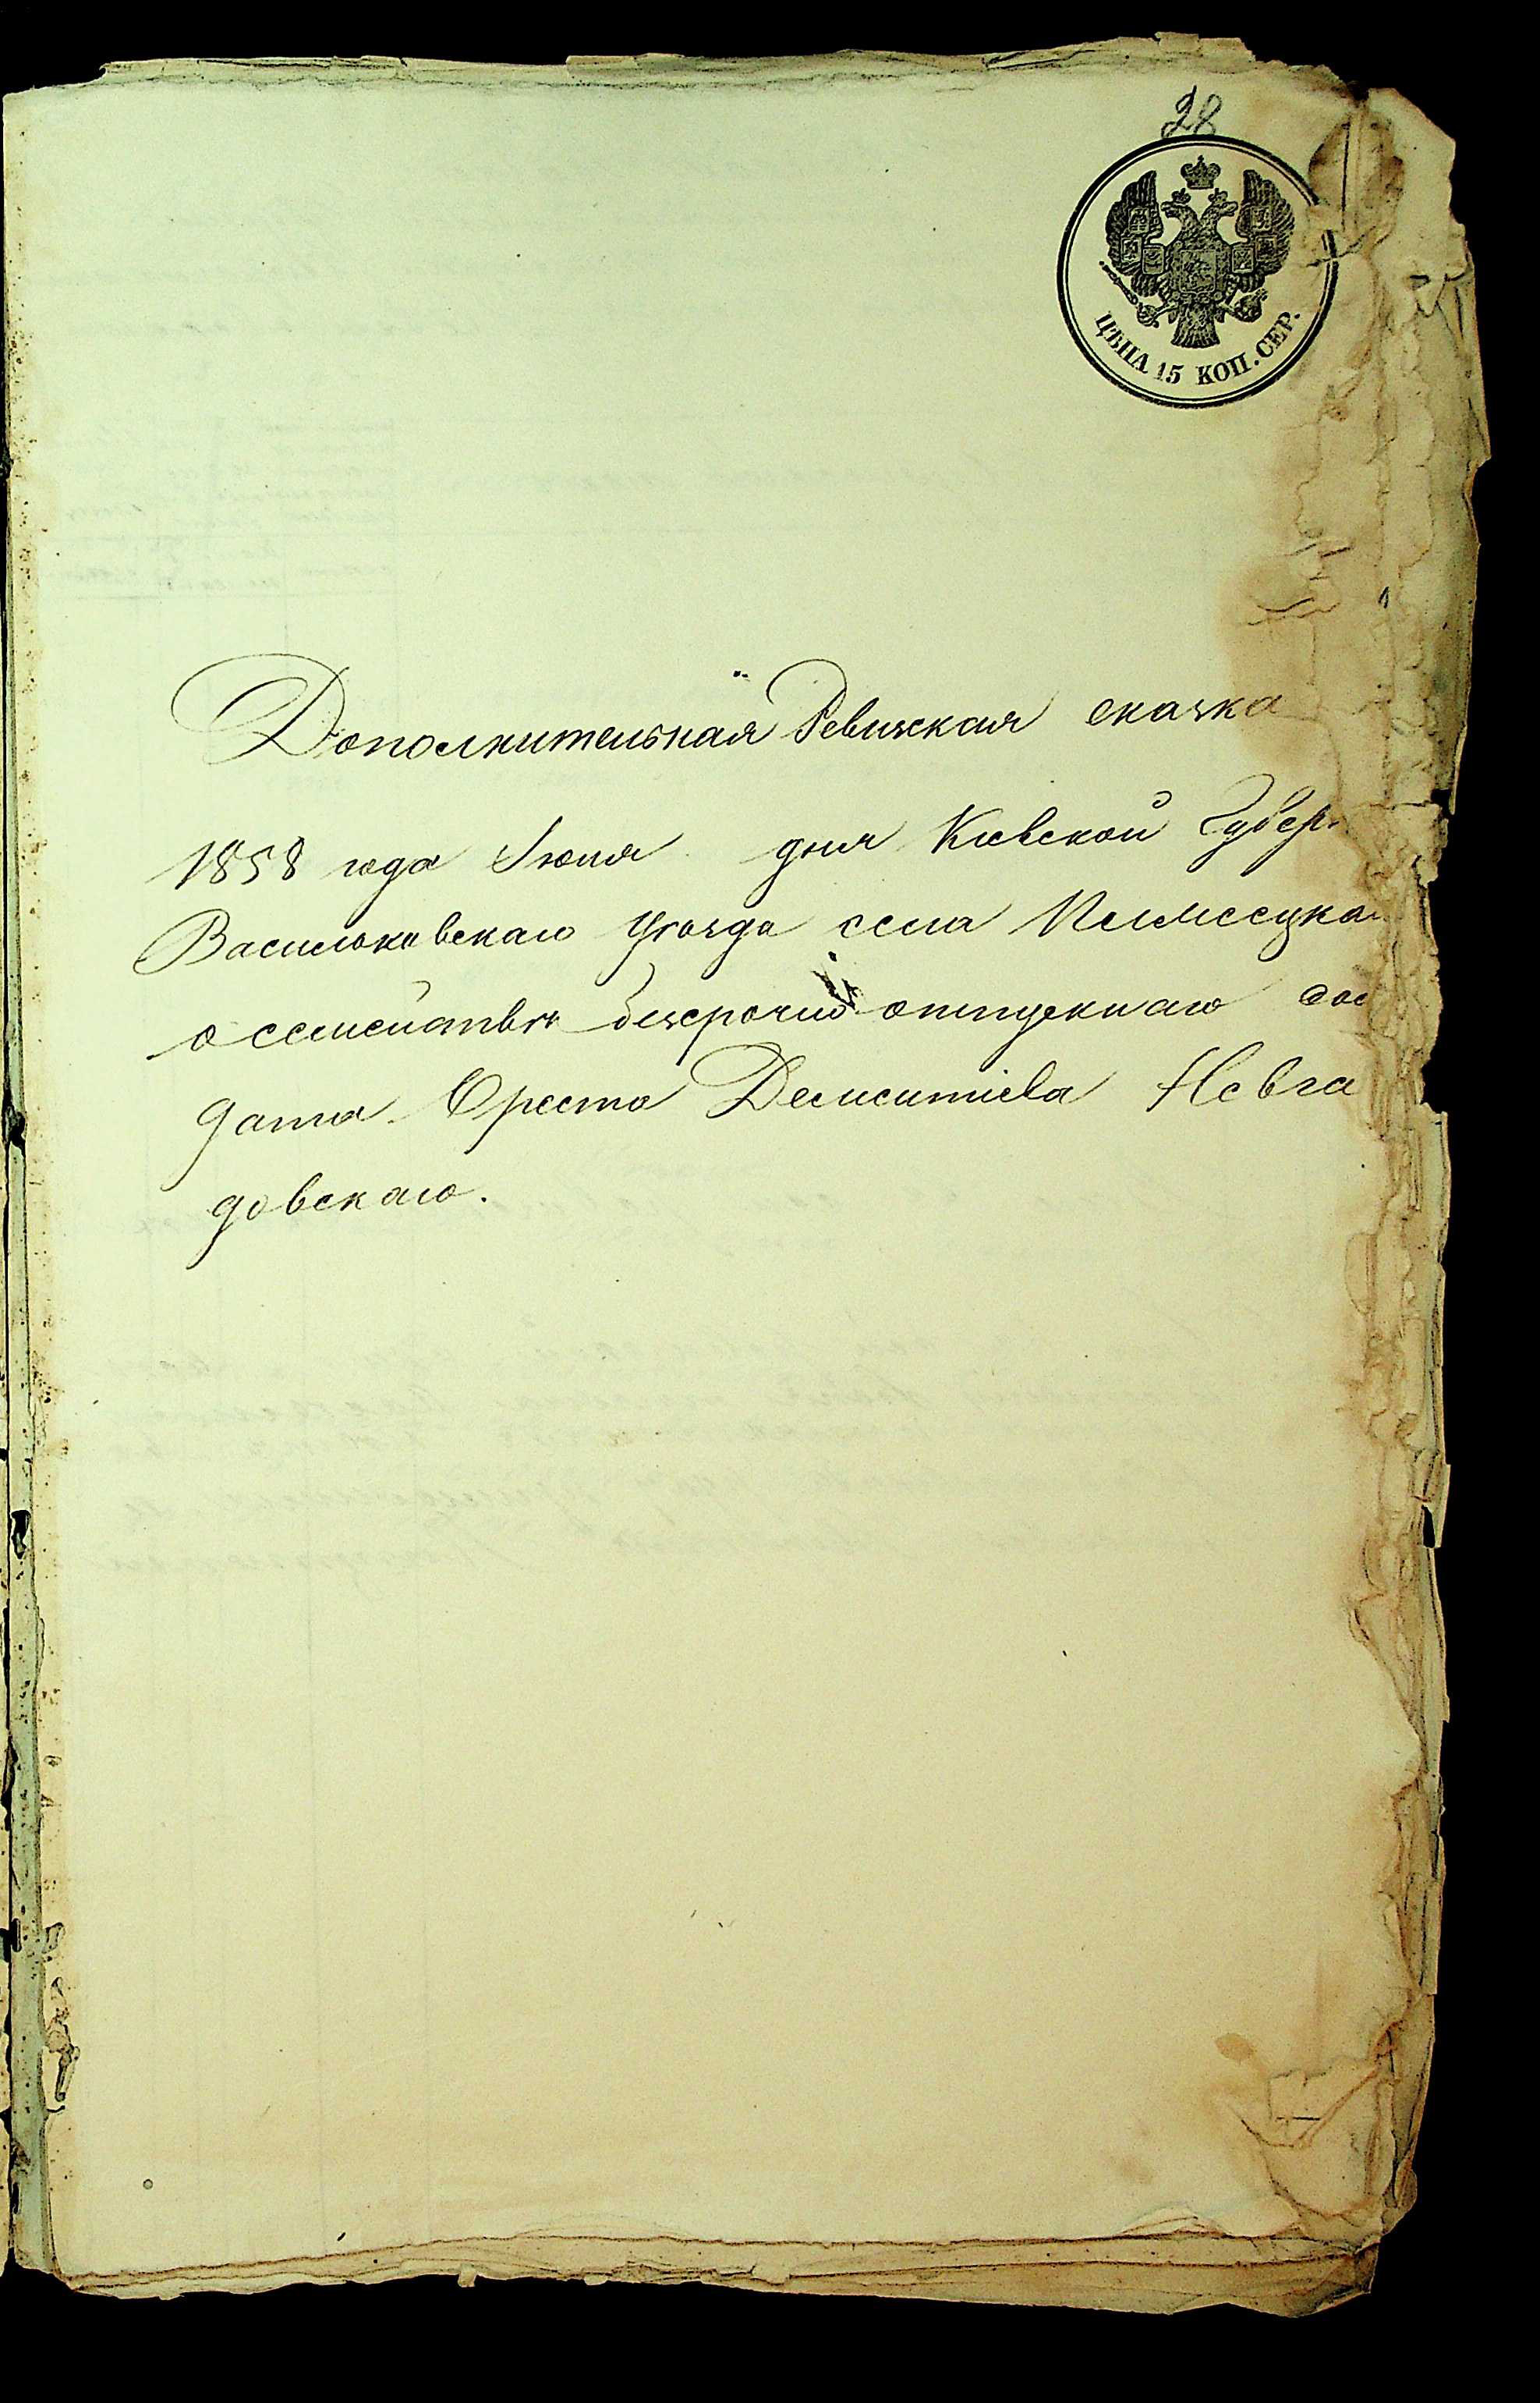 28
ЦѢНА 15 КОП. СЕР.
Дополнительная Ревизская сказка
1858 года Іюня дня Кіевской Губер
Васильковскаго уѣзда села
о семействѣ безсрочно отпускнаго сол
дата Ореста Невга
довскаго.